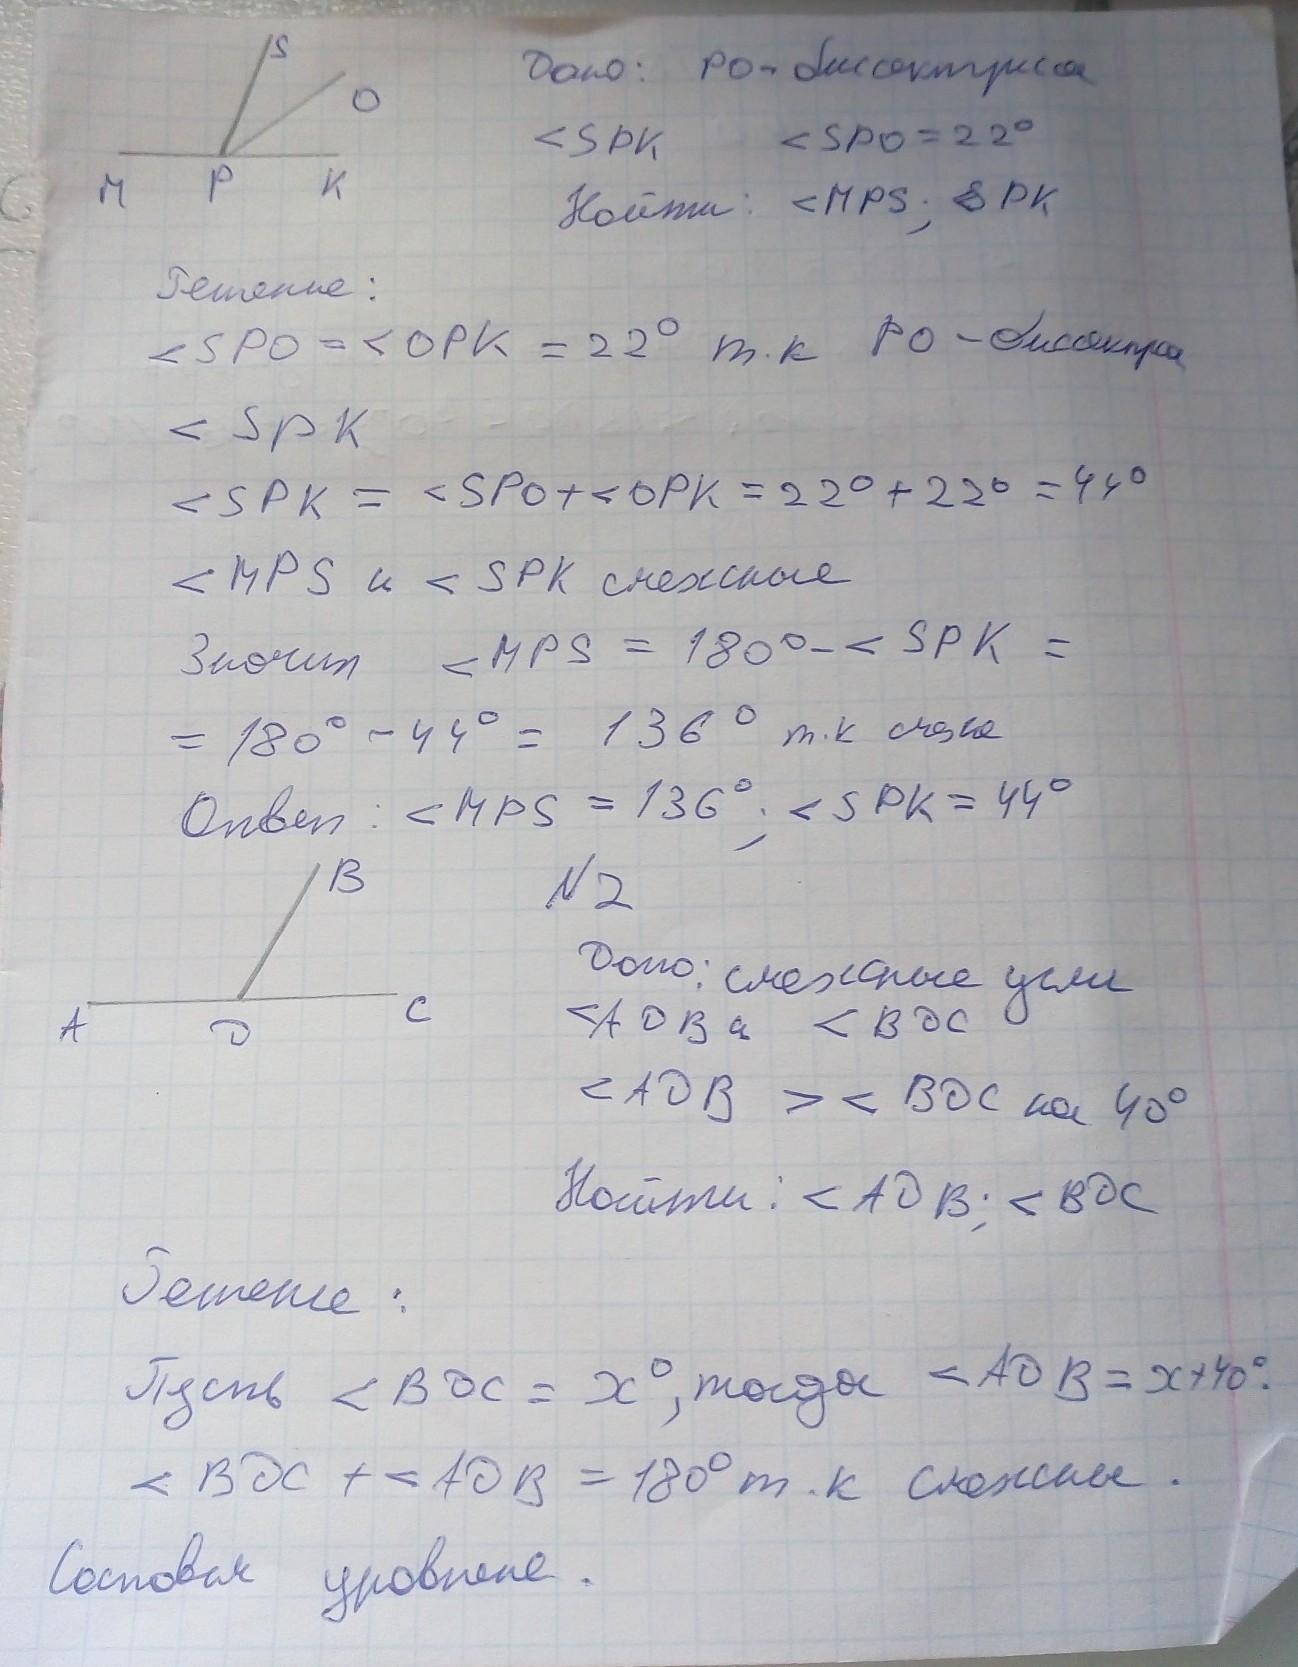 S
O
М Р К
Дано: РО - биссектриса
<SPK <SPO = 22°
Найти: <MPS; <SPK
Решение:
<SPO = <OPK = 22° т.к РО - биссектриса
<SPK
<SPK = <SPO + <OPK = 22° + 22° = 44°
<MPS и <SPK смежные
Значит <MPS = 180° - <SPK =
= 180° - 44° = 136° т.к
Ответ: <MPS = 136°; <SPK = 44°
B
A D C
N2
Дано: смежные углы
<ADB и <BDC
<ADB > <BDC на 40°
Найти: <ADB; <BDC
Решение:
Пусть <BDC = x°, тогда <ADB = x+40°.
<BDC + <ADB = 180° т.к смежны.
Составим уравнение.